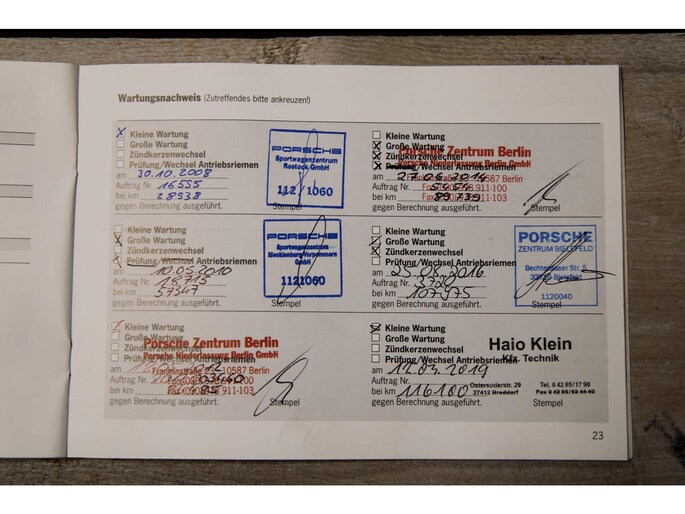 Wartungsnachweis (Zutreffendes bitte ankreuzen!)
Kleine Wartung
Große Wartung
Zündkerzenwechsel
Prüfung/Wechsel Antriebsriemen
am 30.10.2008
Auftrag Nr. 16555
bei km 28938
gegen Berechnung ausgeführt. Stempel
PORSCHE
Sportwagenzentrum
Rostock GmbH
112/1060
Kleine Wartung
Große Wartung
Zündkerzenwechsel
Prüfung/Wechsel Antriebsriemen
am
Auftrag Nr.
bei km
gegen Berechnung ausgeführt. Stempel
Porsche Zentrum Berlin
Porsche Niederlassung Berlin GmbH
10587 Berlin
911-100
911-103
Kleine Wartung
Große Wartung
Zündkerzenwechsel
Prüfung/Wechsel Antriebsriemen
am 10.05.2010
Auftrag Nr. 18715
bei km 57347
gegen Berechnung ausgeführt.
PORSCHE
Sportwagenzentrum
GmbH
1121060
Kleine Wartung
Große Wartung
Zündkerzenwechsel
Prüfung/Wechsel Antriebsriemen
am 25.06.2016
Auftrag Nr. 3720
bei km 107975
gegen Berechnung ausgeführt. Stempel
PORSCHE
ZENTRUM BIELEFELD
Bielefeld
1120040
Kleine Wartung
Große Wartung
Zündkerzenwechsel
Prüfung/Wechsel Antriebsriemen
am
Auftrag Nr.
bei km
gegen Berechnung ausgeführt. Stempel
Porsche Zentrum Berlin
Porsche Niederlassung Berlin GmbH
10587 Berlin
911-103
Kleine Wartung
Große Wartung
Zündkerzenwechsel
Prüfung/Wechsel Antriebsriemen
am
Auftrag Nr.
bei km 116100
gegen Berechnung ausgeführt. Stempel
Haio Klein
Kfz. Technik
Ostersoderstr. 29
27412 Breddorf
Tel. 0 42 85/17 90
23